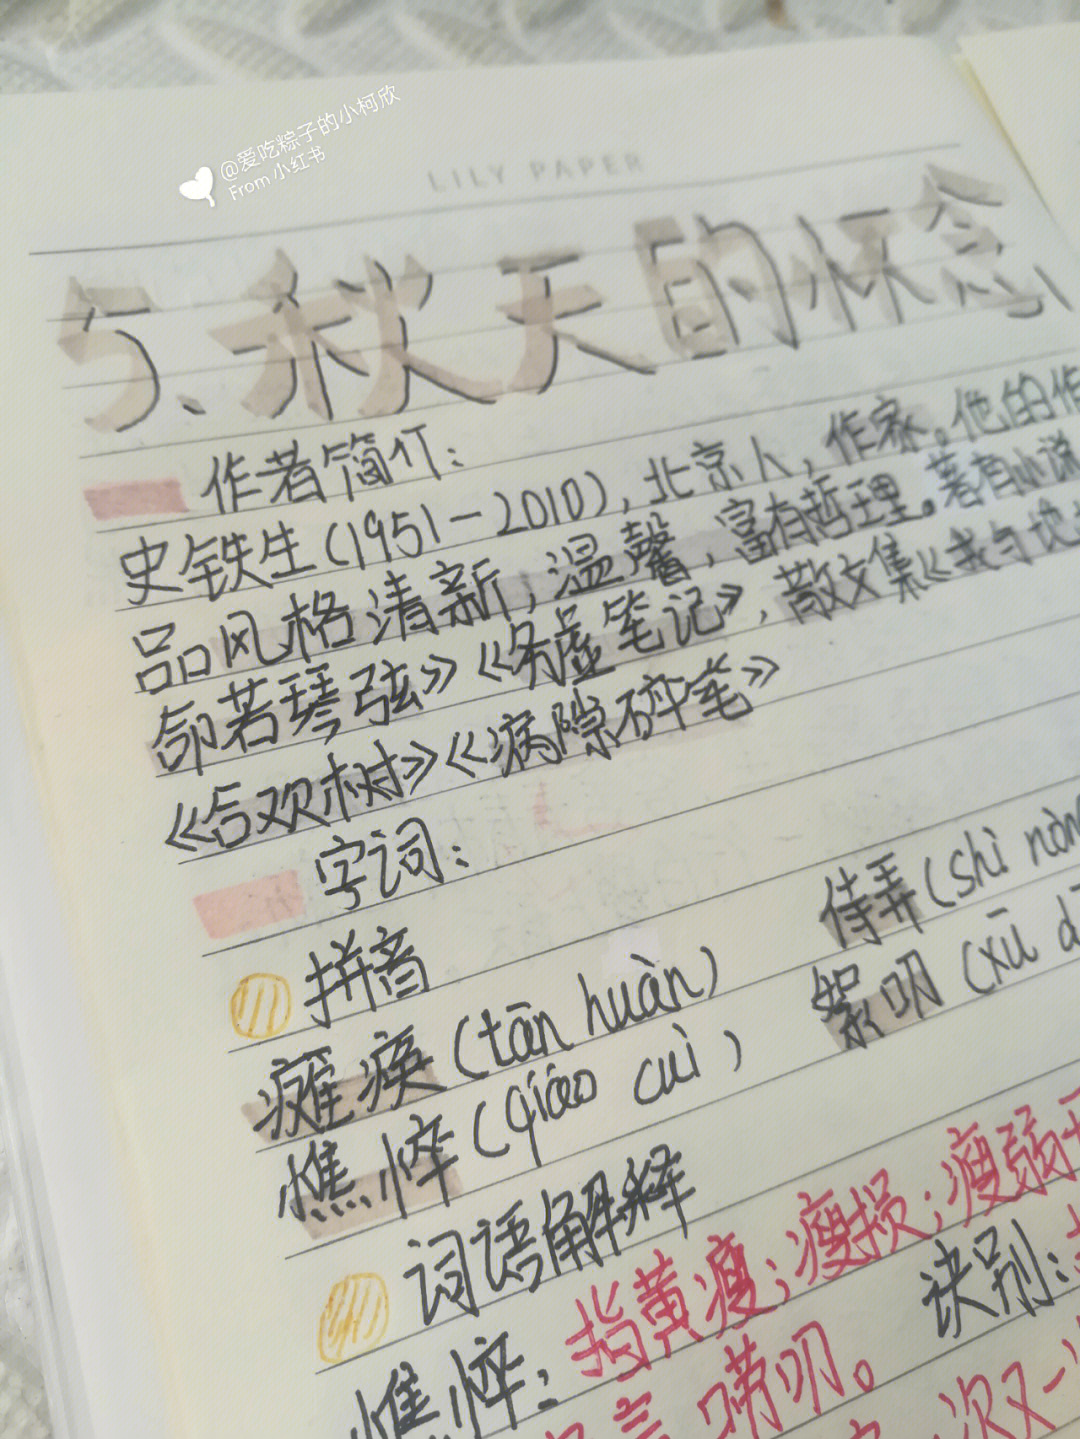 @爱吃粽子的小柯欣
From 小红书
LILY PAPER
5.秋天的怀念
作者简介:
史铁生(1951-2010),北京人,作家。他的作
品风格清新,温馨,富有哲理。著有小说
命若琴弦》《务虚笔记》,散文集《我与地
《合欢树》《病隙碎笔》
字词:
拼音
侍弄(shì nòn
瘫痪(tān huàn)
絮叨(xū d
憔悴(qiáo cuì)
词语解释
憔悴:指黄瘦;瘦损;瘦弱
诀别:
唠叨。
次又一